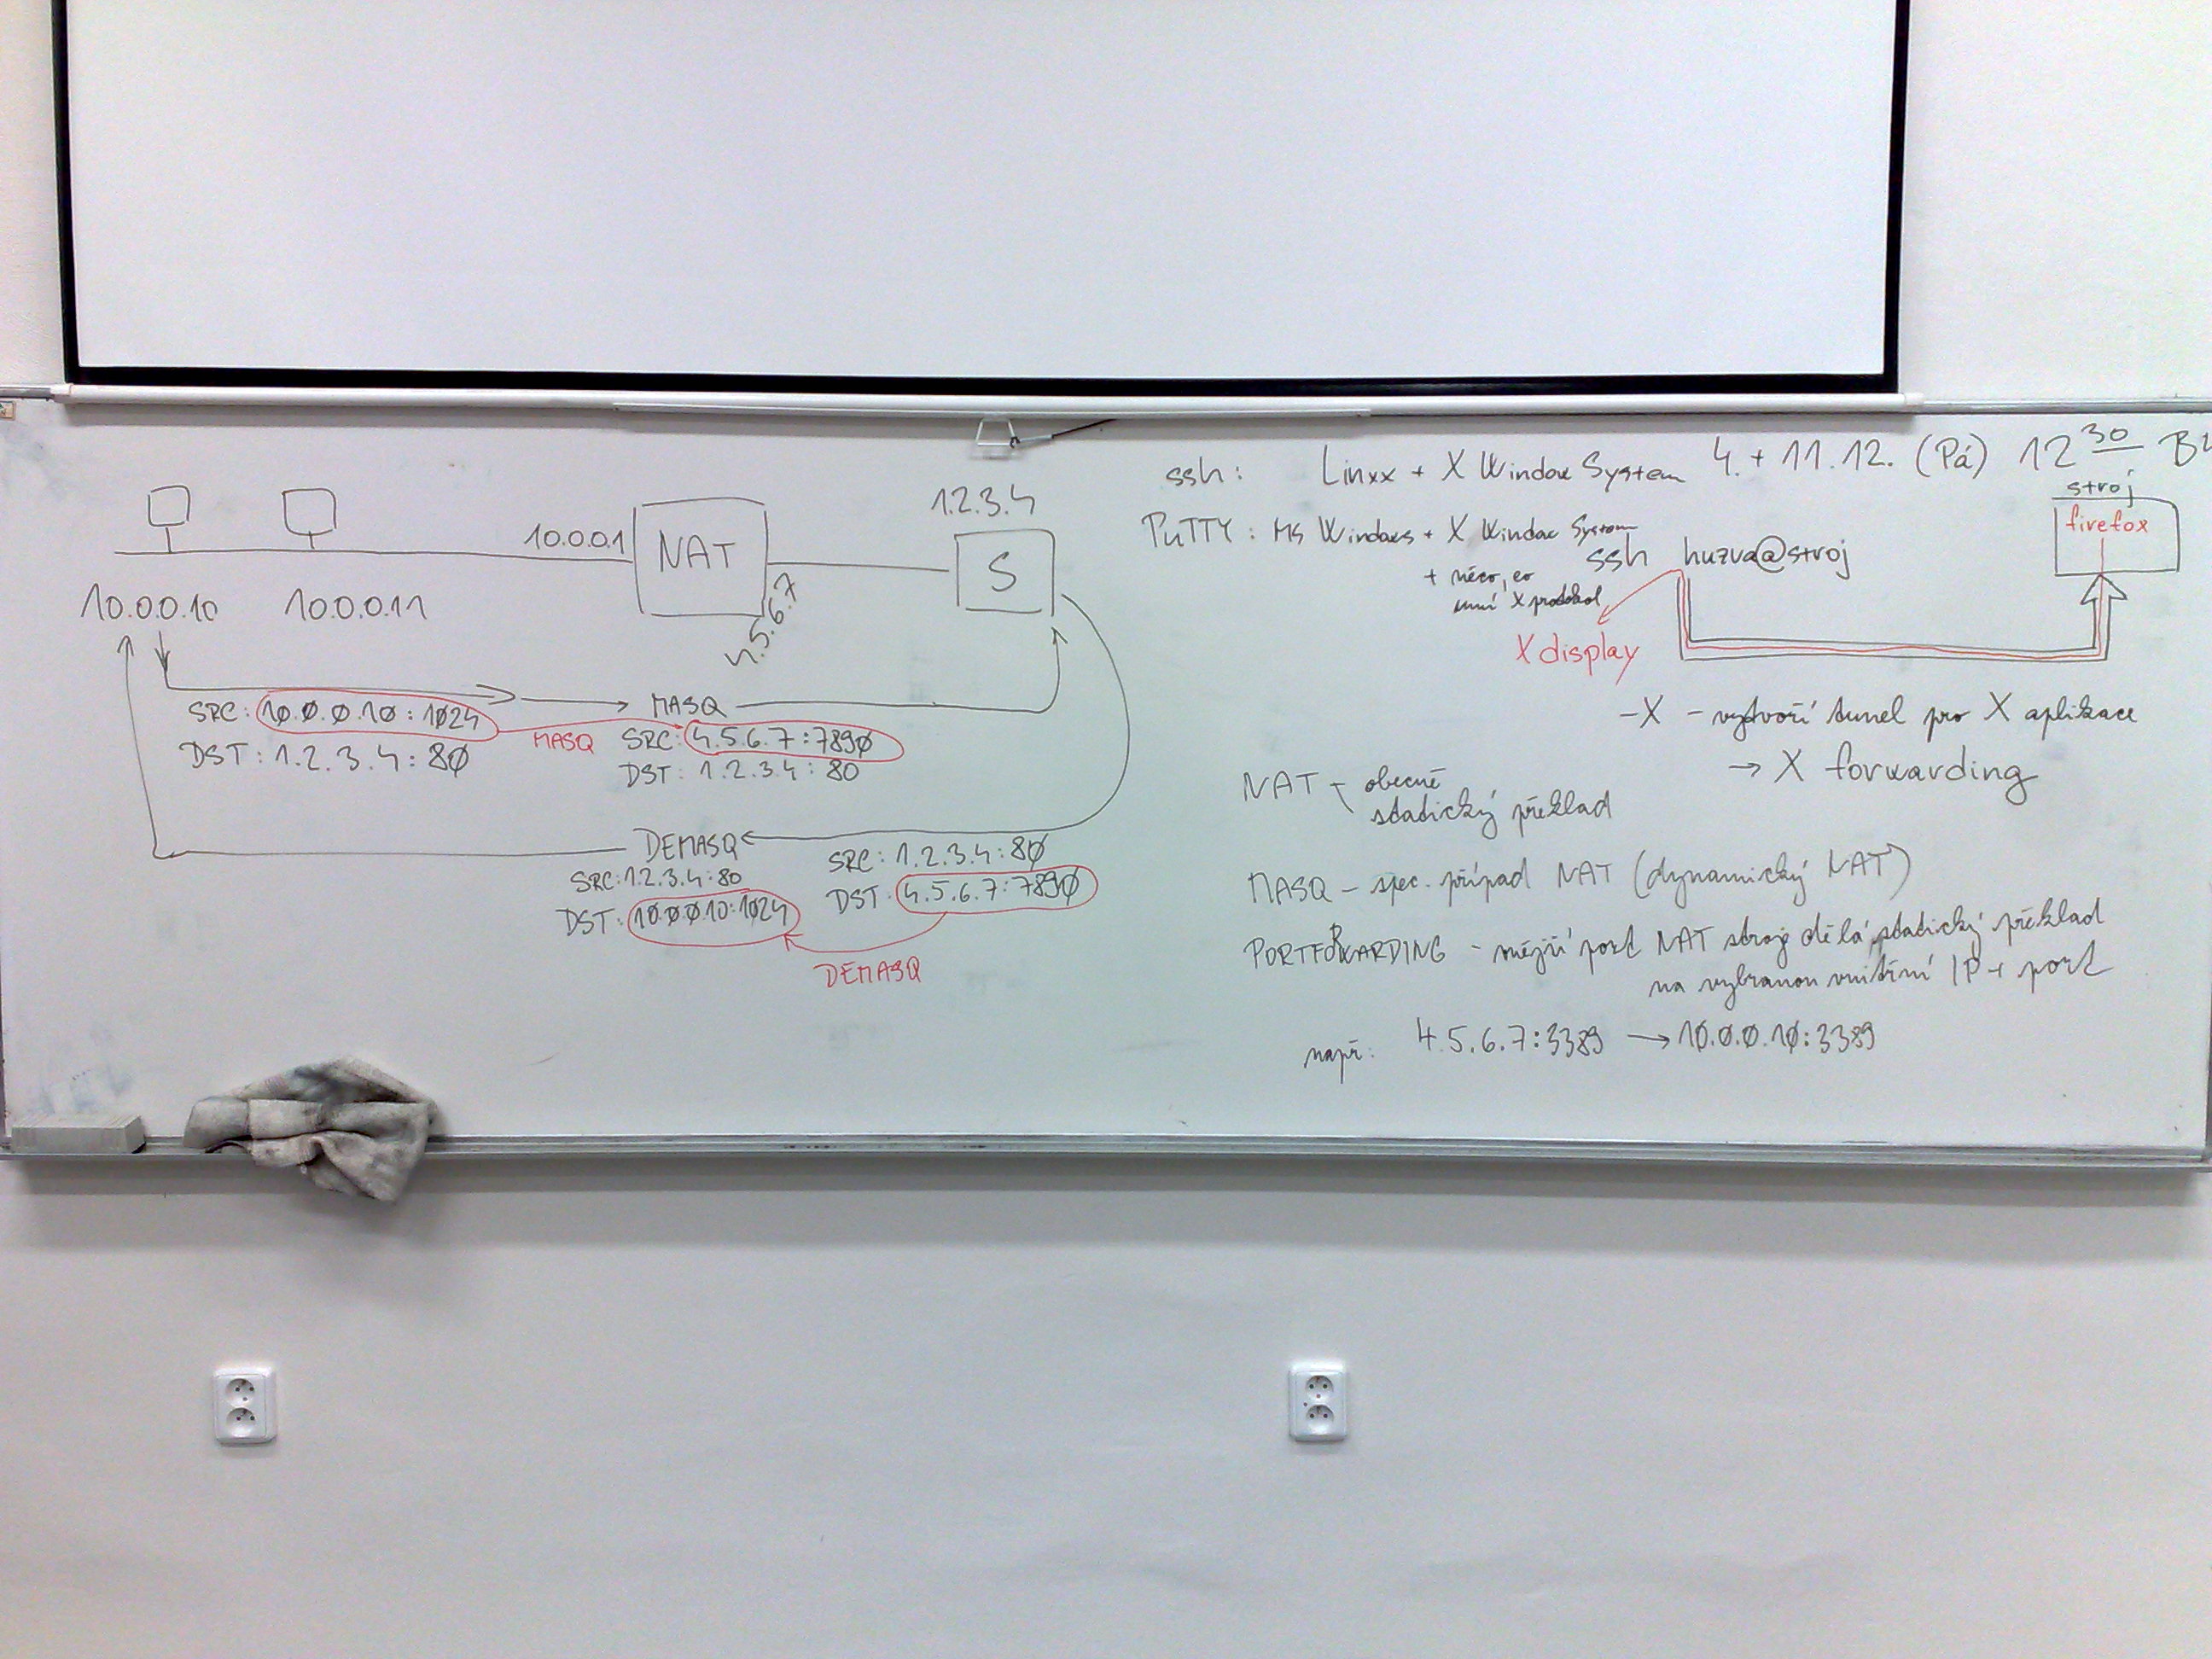 10.0.0.10
10.0.0.11
10.0.0.1
NAT
4.5.6.7
1.2.3.4
S
SRC: 10.0.0.10:1024
DST: 1.2.3.4:80
MASQ
MASQ
SRC: 4.5.6.7:7890
DST: 1.2.3.4:80
DEMASQ
SRC: 1.2.3.4:80
DST: 10.0.0.10:1024
SRC: 1.2.3.4:80
DST: 4.5.6.7:7890
DEMASQ
ssh: Linxx + X Window System
4. + 11.12. (Pá) 12 30
PuTTY: MS Windows + X Window System
+ něco, co
umí X protokol
ssh huzva@stroj
stroj
firefox
X display
-X - vytvoří tunel pro X aplikace
→ X forwarding
NAT - obecně
statický překlad
MASQ - spec. případ NAT (dynamický NAT)
PORTFORWARDING - vnější port NAT stroje dělá statický překlad
na vybranou vnitřní IP + port
např: 4.5.6.7:3389 → 10.0.0.10:3389